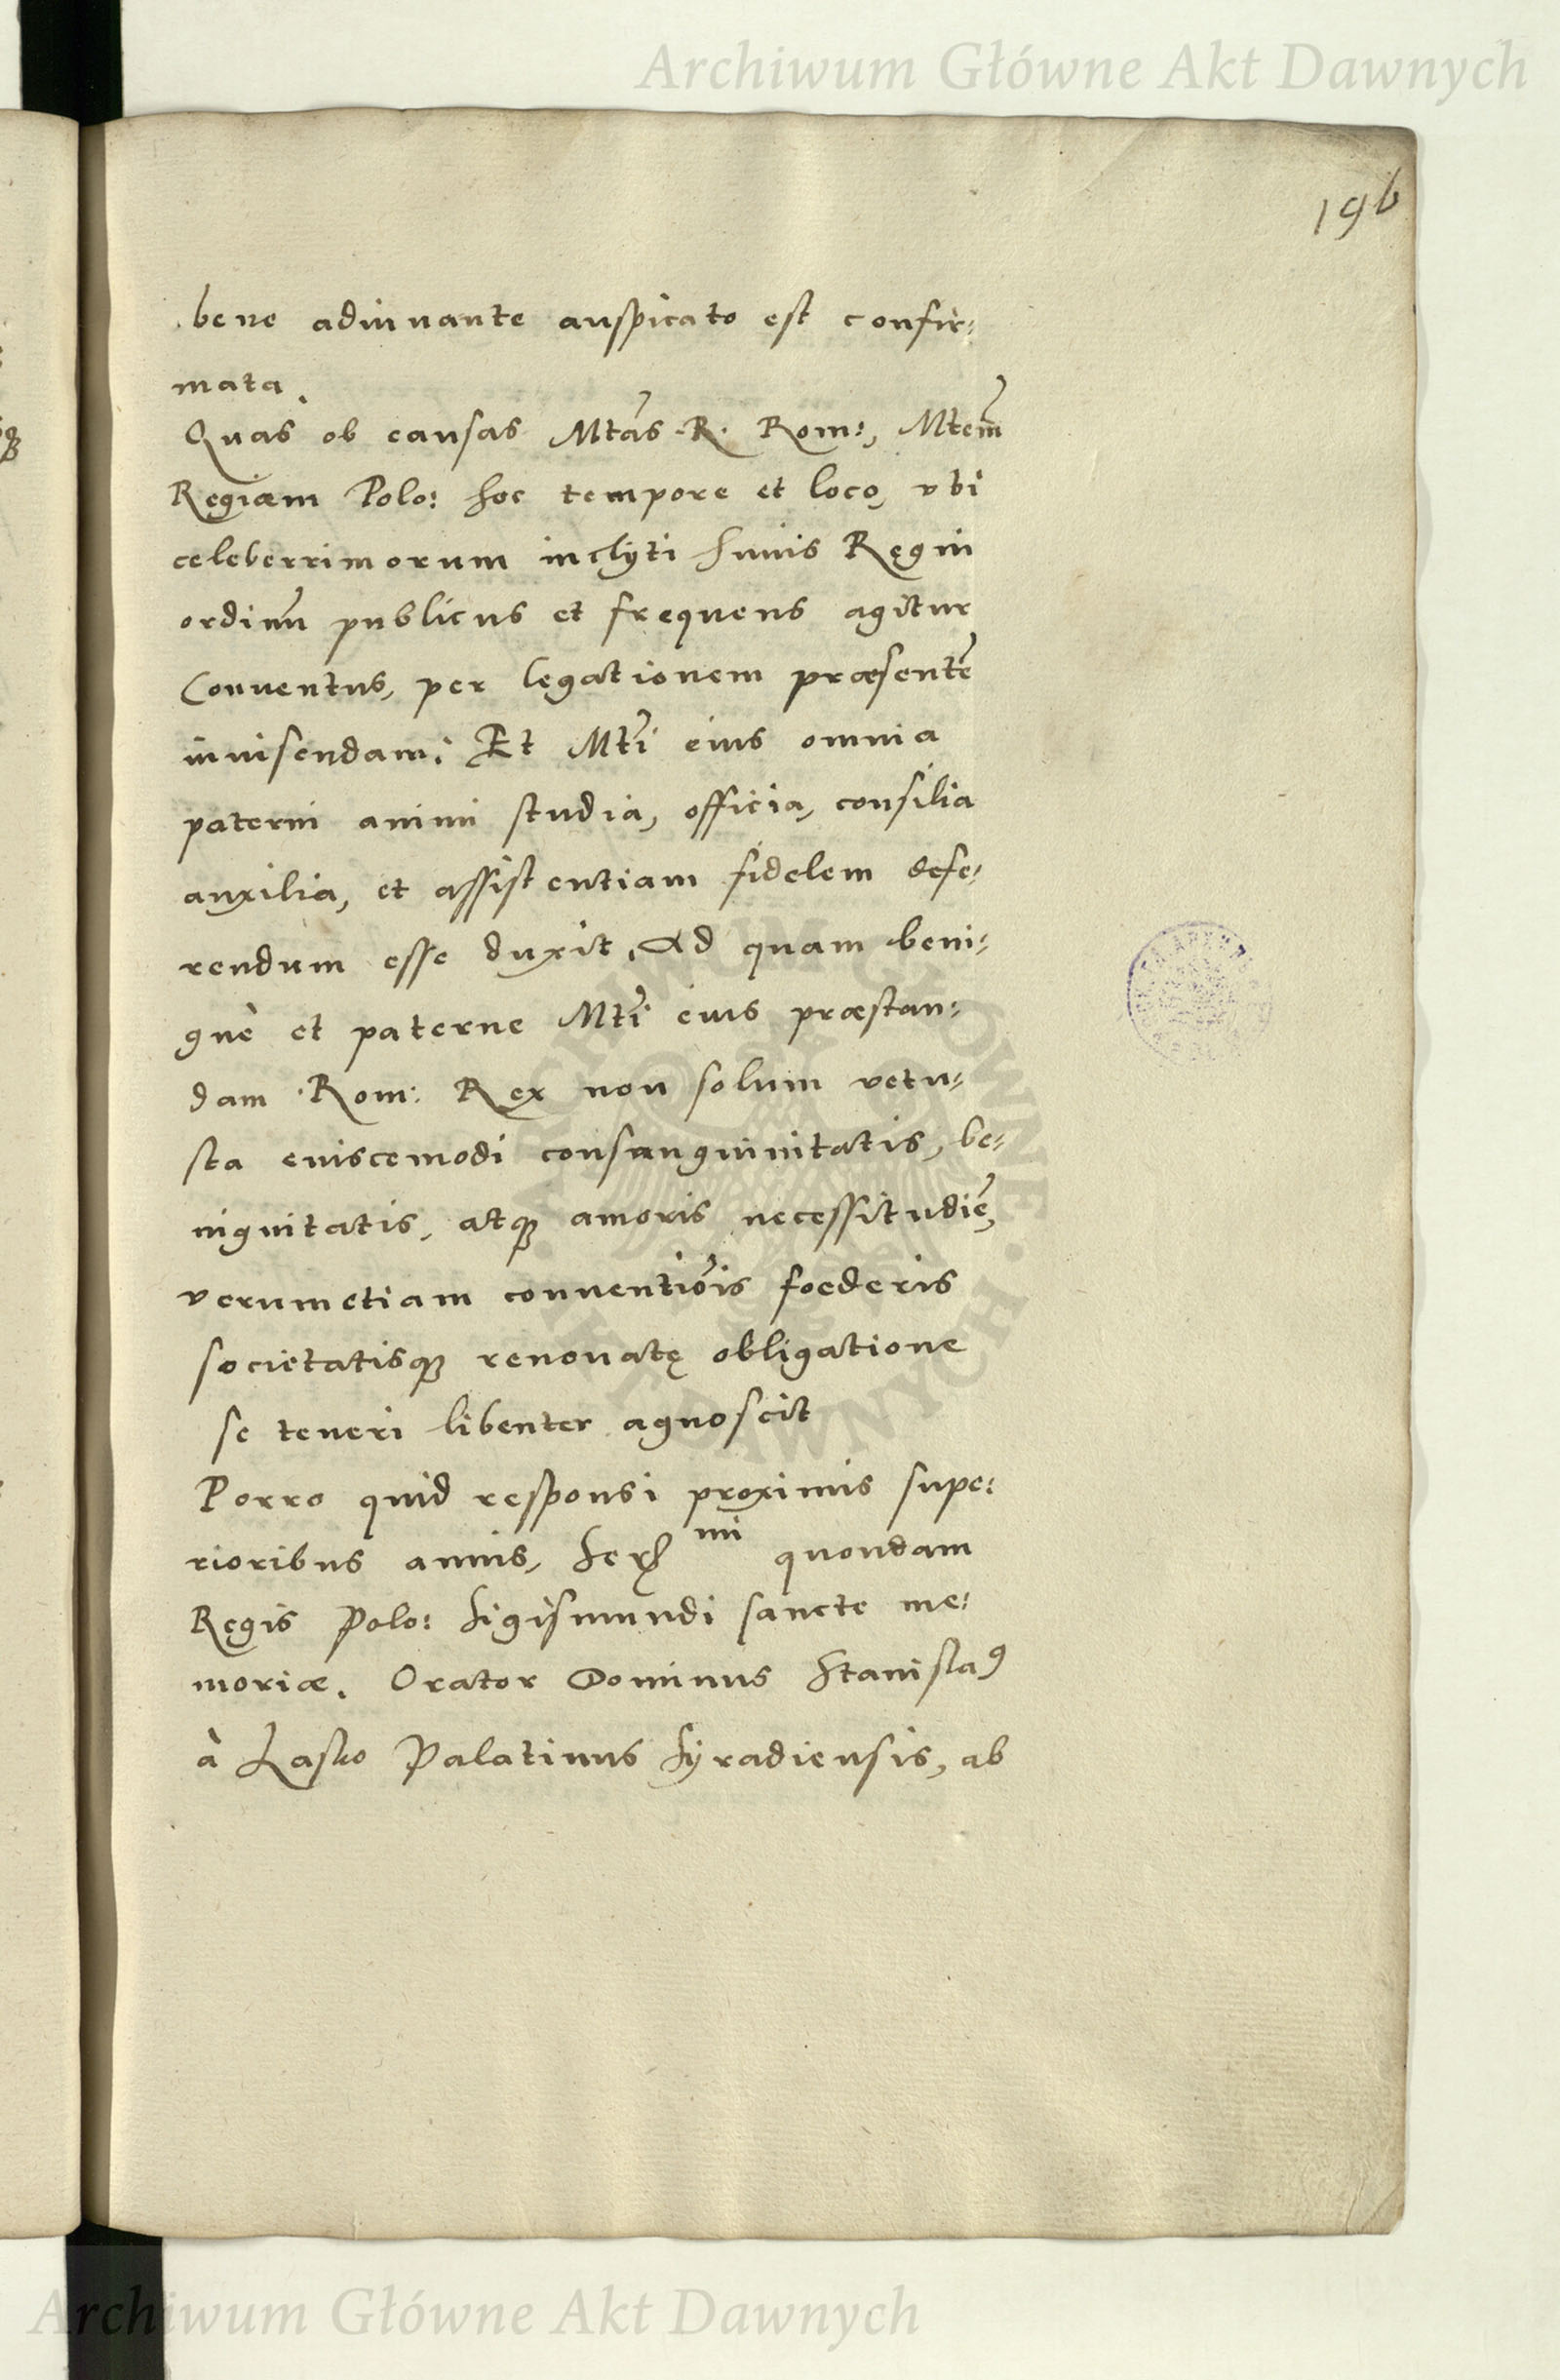 Archiwum Główne Akt Dawnych
196
bene adiuuante auspicato est confir:
mata.
Quas ob causas Mtãs R. Rom:, Mtem̃
Regiam Polo: hoc tempore et loco, vbi
celeberrimorum inclyti huius Regni
ordinũ publicus et frequens agitur
Conuentus, per legationem præsentẽ
inuisendam: Et Mtĩ eius omnia
paterni animi studia, officia, consilia
auxilia, et assistentiam fidelem defe:
rendum esse duxit. Ad quam beni:
gnè et paterne Mtĩ eius præstan:
dam Rom: Rex non solum vetu:
sta euiscemodi consanguinitatis, be:
nignitatis, atq; amoris necessitudiẽ,
verumetiam conuentiõis foederis
societatisq; renouatę obligatione
se teneri libenter agnoscit
Porro quid responsi proximis supe:
rioribus annis, Ser. mi quondam
Regis Polo: Sigismundi sancte me:
moriæ. Orator Dominus Stanisla9
à Lasko Palatinus Syradiensis, ab
Archiwum Główne Akt Dawnych